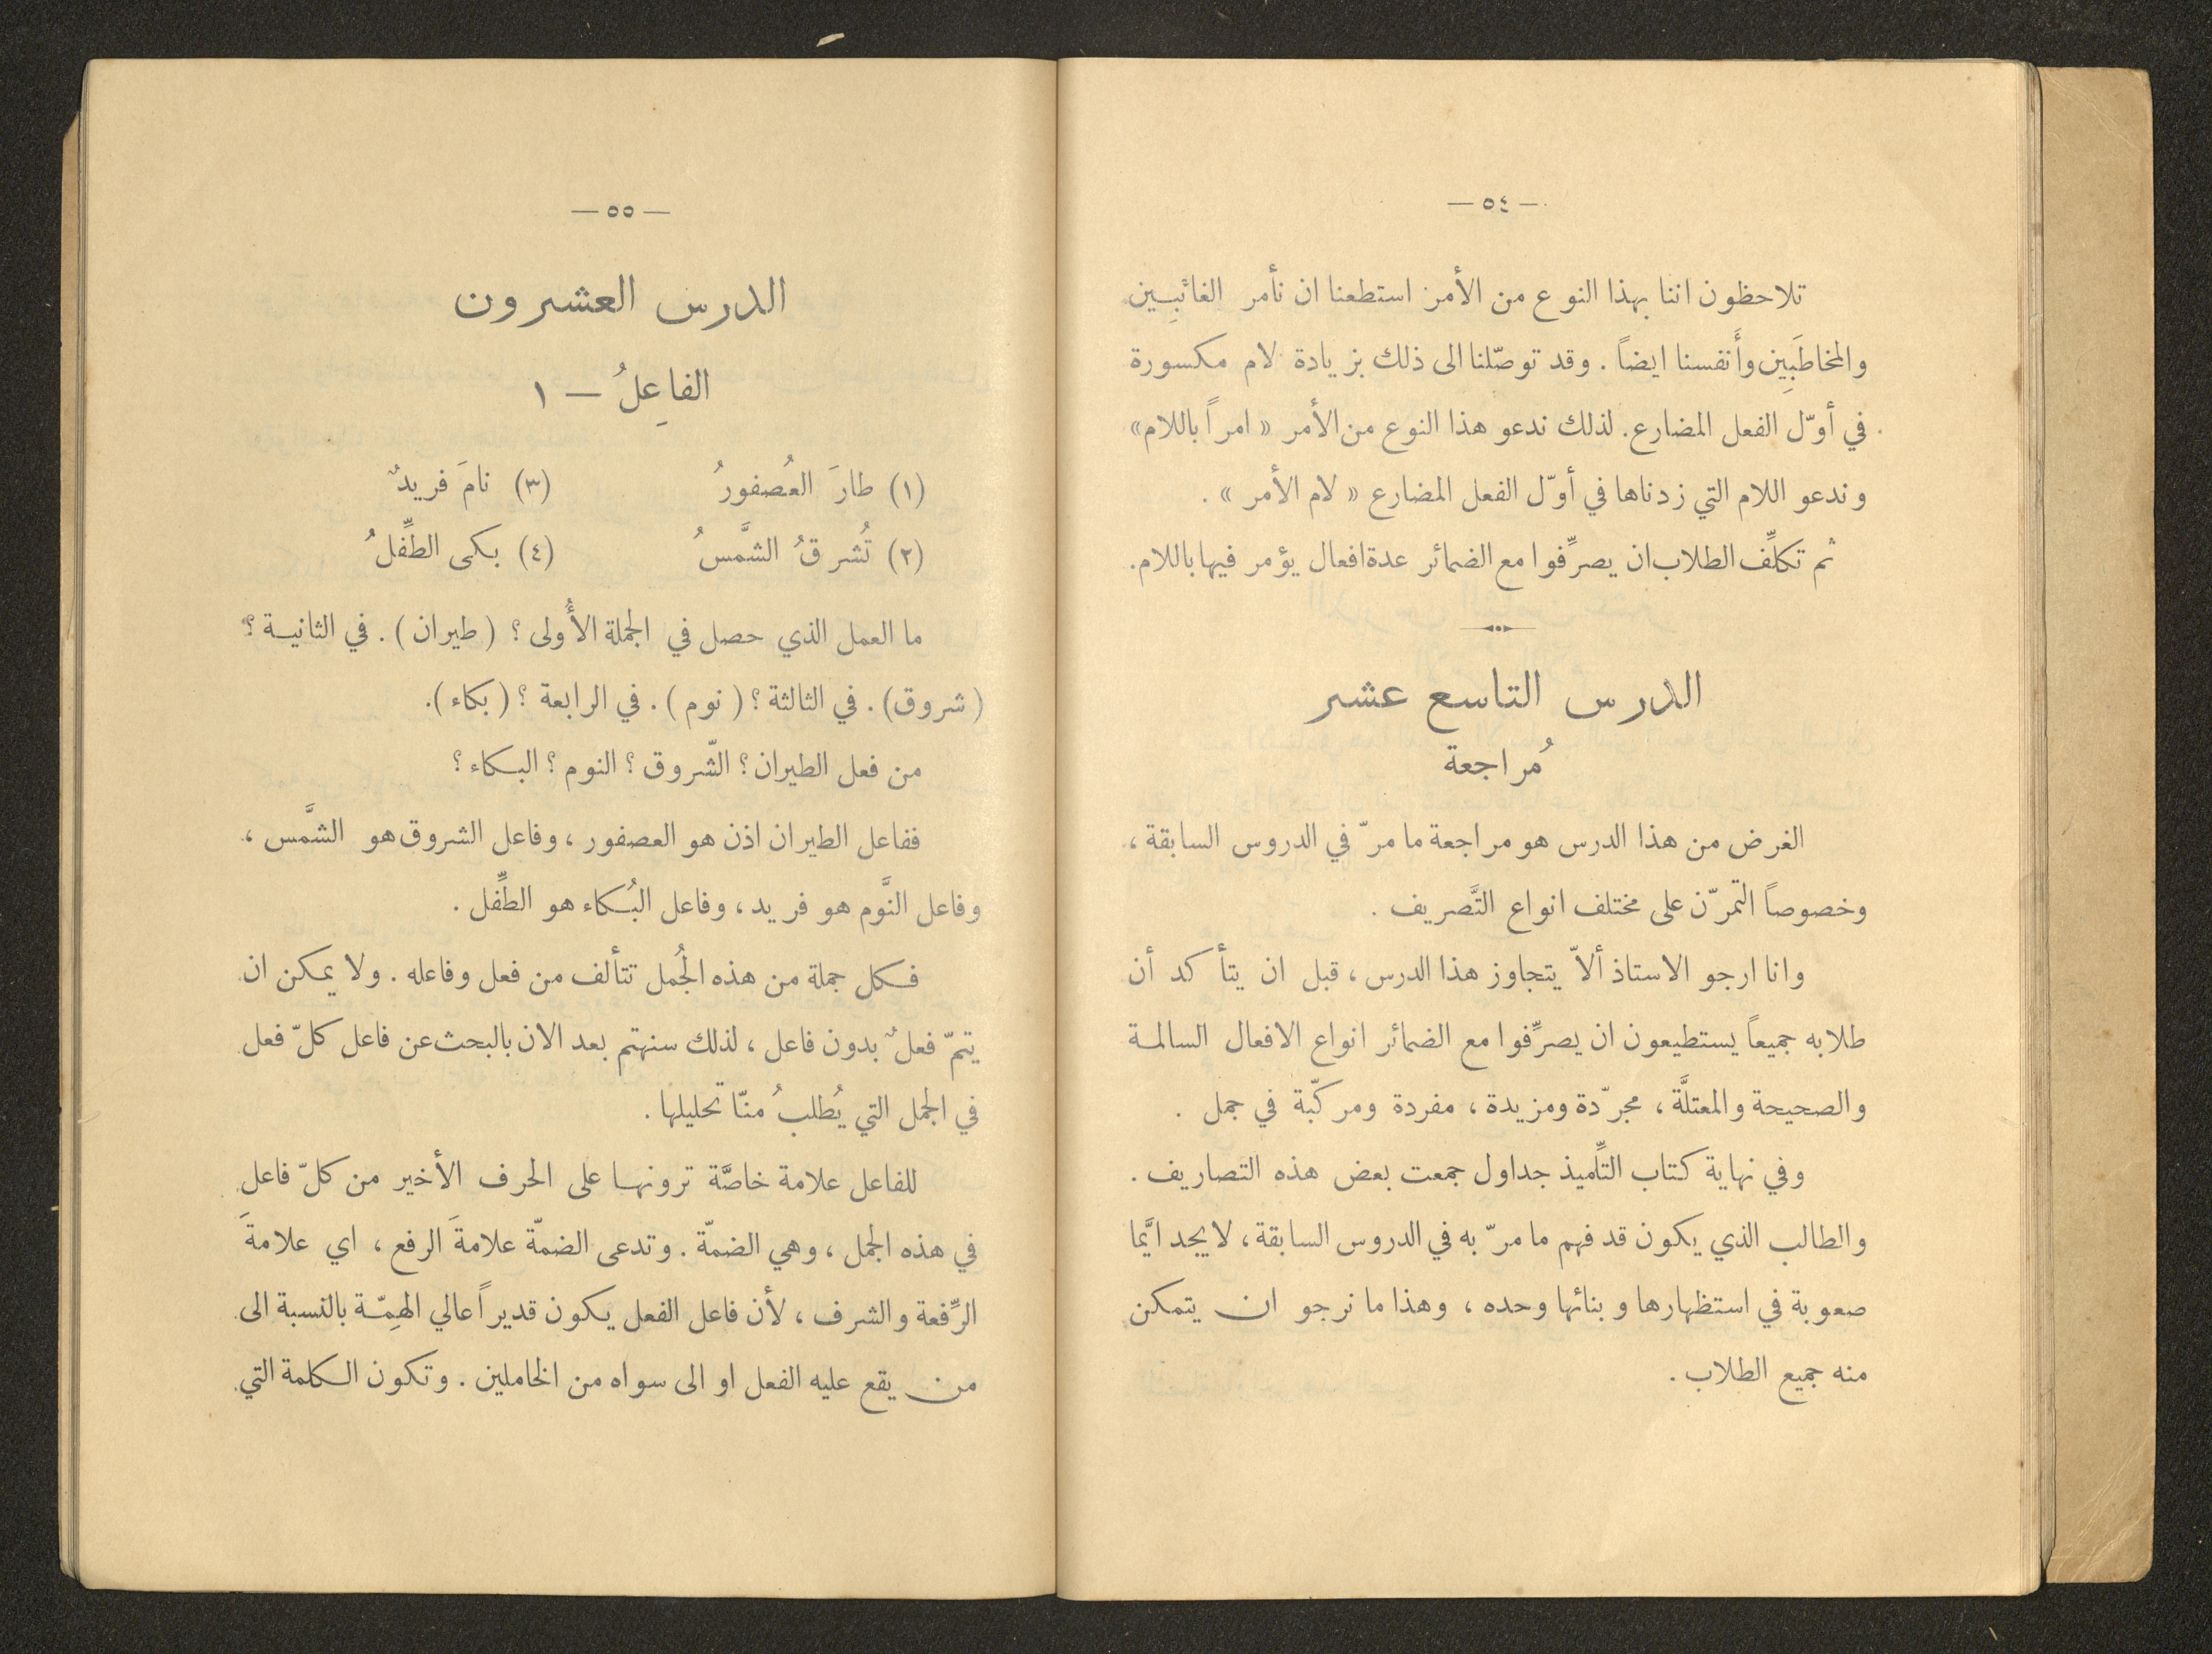 — ٥٤ —
تلاحظون اننا بهذا النوع من الأمر استطعنا ان نأمر الغائبِين
والمخاطَبِين وأَنفسنا ايضاً . وقد توصّلنا الى ذلك بزيادة لام مكسورة
في أوّل الفعل المضارع. لذلك ندعو هذا النوع من الأمر « امراً باللام»
وندعو اللام التي زدناها في أوّل الفعل المضارع « لام الأمر » .
ثم تكلِّف الطلاب ان يصرِّفوا مع الضمائر عدة افعال يؤمر فيها باللام.
الدرس التاسع عشر
مُراجعة
الغرض من هذا الدرس هو مراجعة ما مرّ في الدروس السابقة ،
وخصوصاً التمرّن على مختلف انواع التَّصريف .
وانا ارجو الاستاذ ألاّ يتجاوز هذا الدرس ، قبل ان يتأكد أن
طلابه جميعاً يستطيعون ان يصرِّفوا مع الضمائر انواع الافعال السالمة
والصحيحة والمعتلَّة ، مجرّدة ومزيدة ، مفردة ومركّبة في جمل .
وفي نهاية كتاب التِّلميذ جداول جمعت بعض هذه التصاريف .
والطالب الذي يكون قد فهم ما مرّ به في الدروس السابقة ، لا يجد ايَّما
صعوبة في استظهارها وبنائها وحده ، وهذا ما نرجو ان يتمكن
منه جميع الطلاب .
— ٥٥ —
الدرس العشرون
الفاعِلُ — ١
(١) طارَ العُصفورُ (٣) نامَ فريدٌ
(٢) تُشرقُ الشَّمسُ (٤) بكى الطِّفلُ
ما العمل الذي حصل في الجملة الأُولى ؟ ( طيران ) . في الثانية ؟
( شروق) . في الثالثة ؟ ( نوم ) . في الرابعة ؟ ( بكاء ).
من فعل الطيران ؟ الشّروق ؟ النوم ؟ البكاء ؟
ففاعل الطيران اذن هو العصفور ، وفاعل الشروق هو الشَّمس ،
وفاعل النَّوم هو فريد ، وفاعل البُكاء هو الطِّفل .
فكل جملة من هذه الجُمل تتألف من فعل وفاعله . ولا يمكن ان
يتمّ فعلٌ بدون فاعل ، لذلك سنهتم بعد الان بالبحث عن فاعل كلّ فعل
في الجمل التي يُطلبُ منّا تحليلها .
للفاعل علامة خاصَّة ترونها على الحرف الأخير من كلّ فاعل
في هذه الجمل ، وهي الضمّة . وتدعى الضمّة علامةَ الرفع ، اي علامةَ
الرِّفعة والشرف ، لأن فاعل الفعل يكون قديراً عالي الهِمّة بالنسبة الى
من يقع عليه الفعل او الى سواه من الخاملين . وتكون الكلمة التي